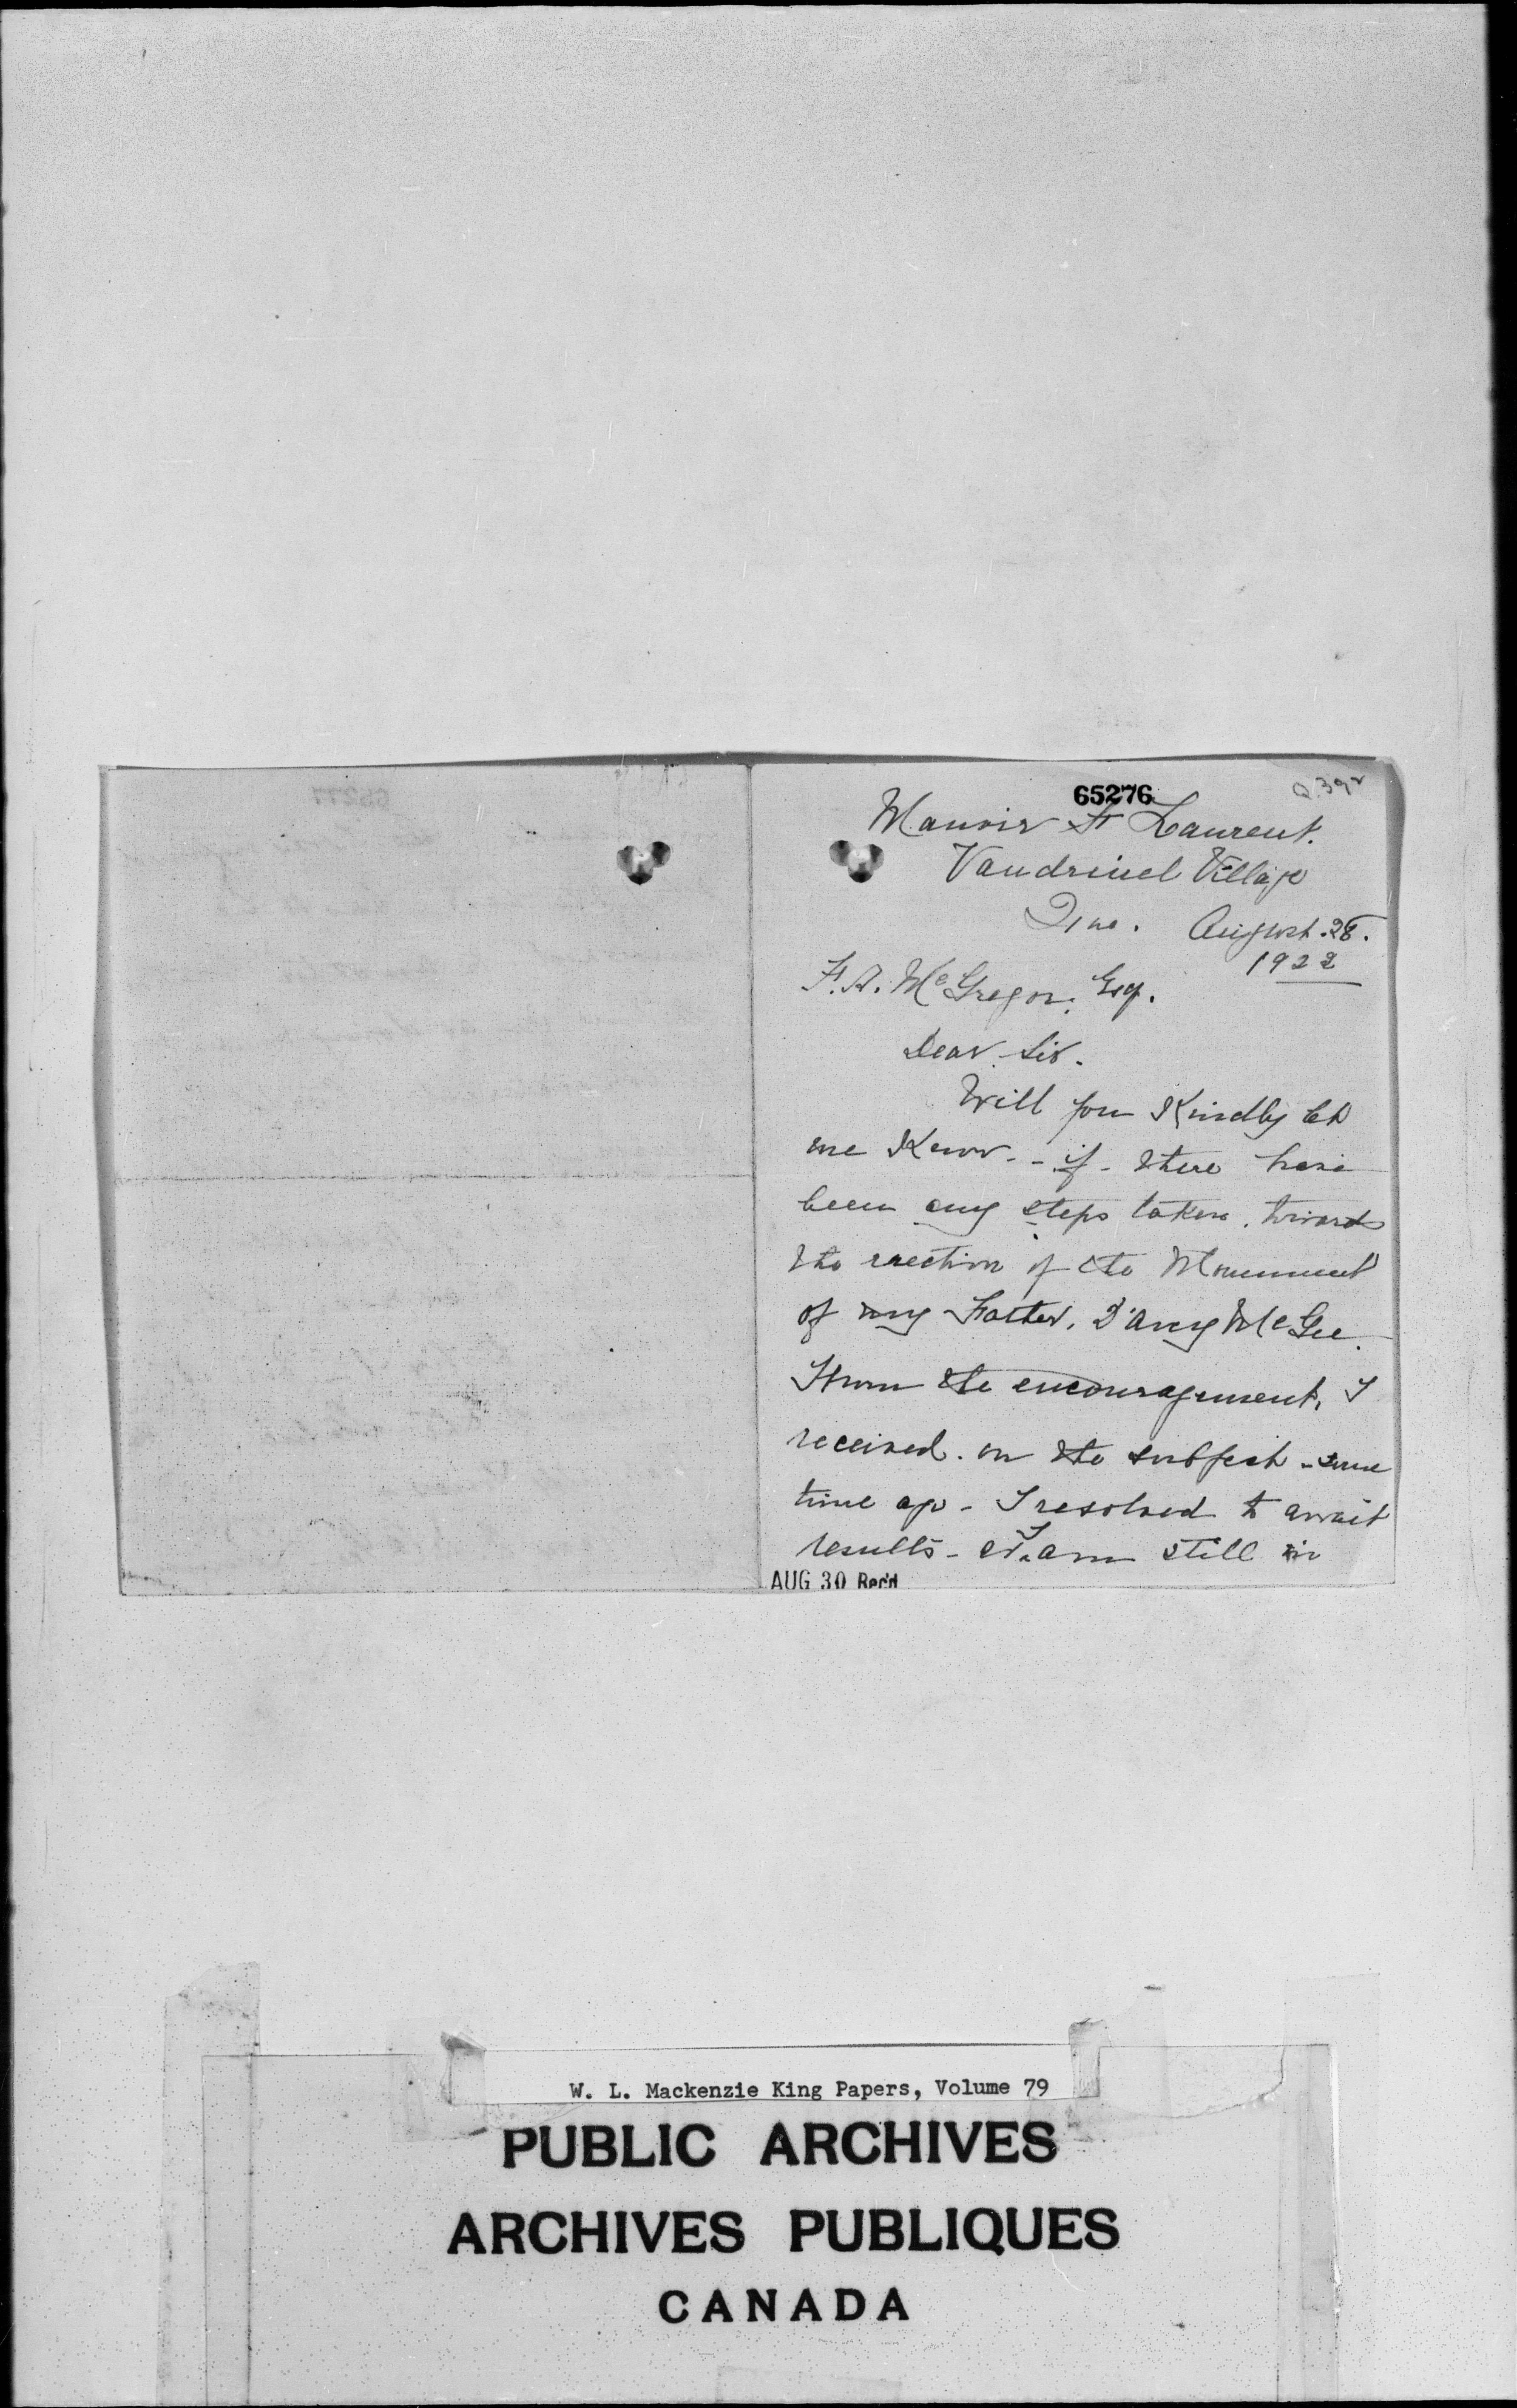 65276
Q.392
Manoir St Laurent.
Vaudreuil Village
Que. August. 28.
1922
F. A. McGregor, Esq.
Dear Sir.
Will you Kindly let
me Know - - if - there have
been any steps taken. towards
the erection of the Monument
of my Father, D'Arcy McGee.
From the encouragement, I
received. on the subject - some
time ago - I resolved to await
results - & I am still in
AUG 30 Rec'd
W. L. Mackenzie King Papers, Volume 79
PUBLIC ARCHIVES
ARCHIVES PUBLIQUES
CANADA